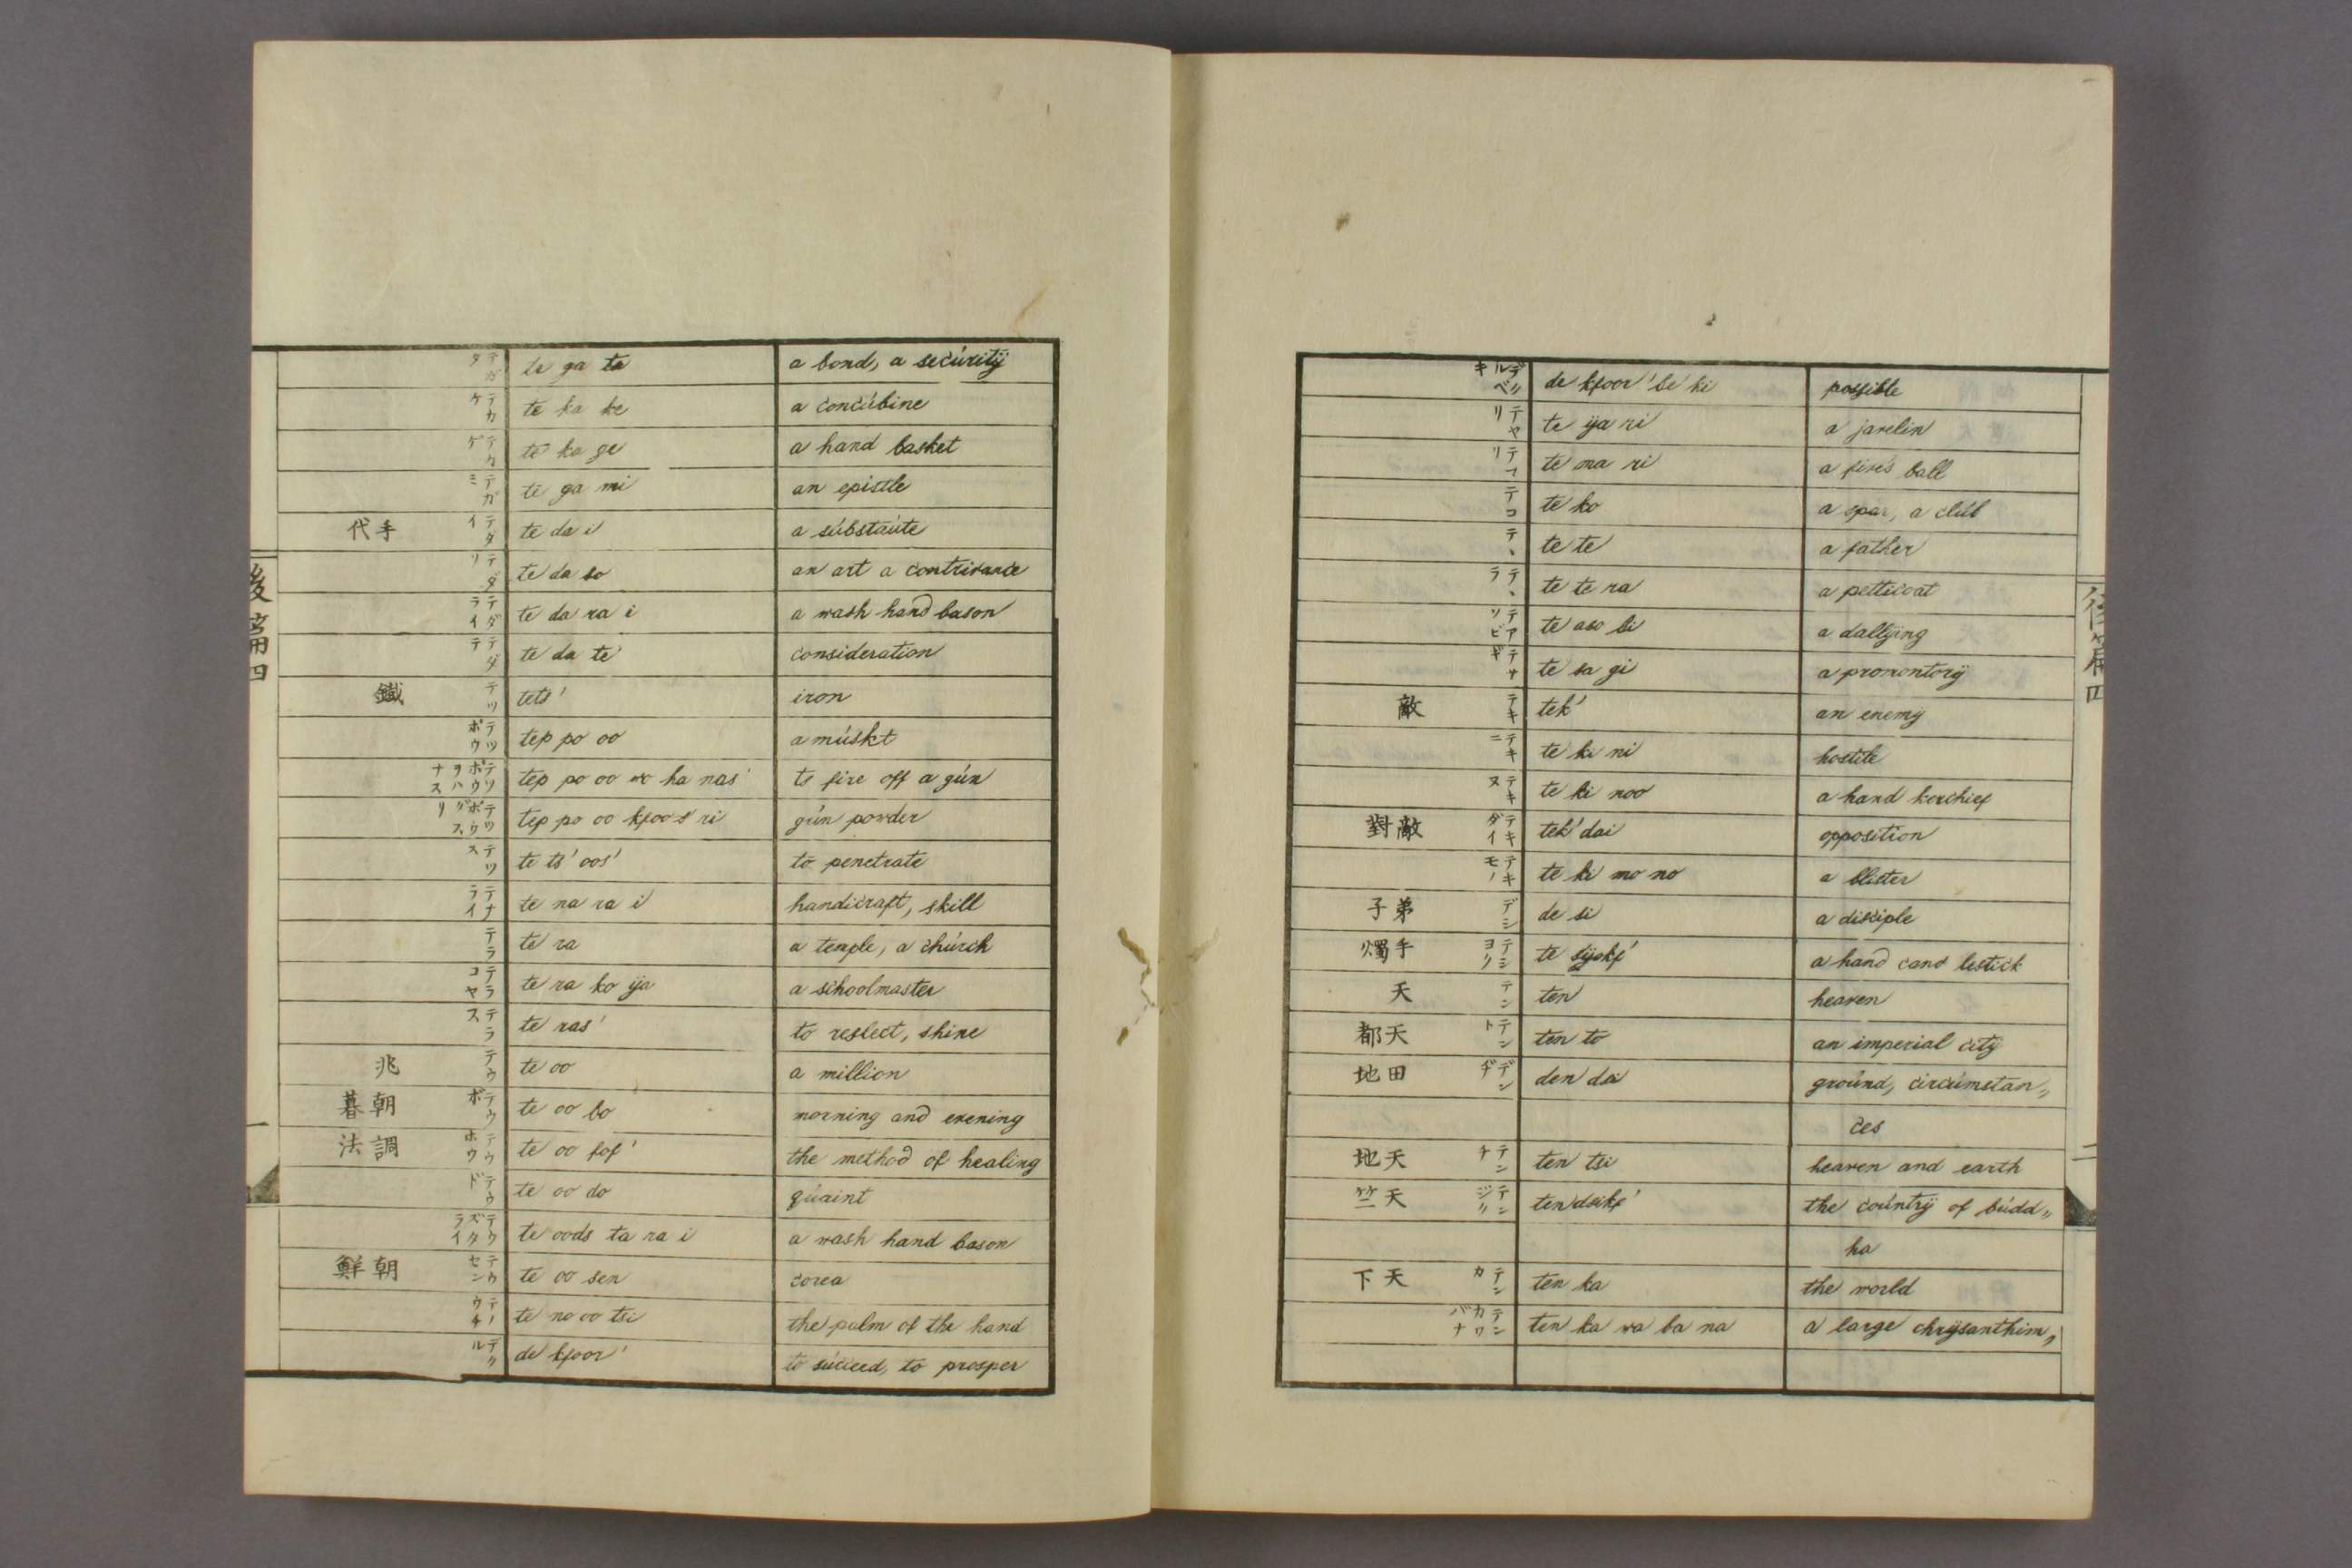 後篇四
一
テガタ te ga ta a bond, a secúritÿ
テカケ te ka ke a concúbine
テカゲ te ka ge a hand basket
テガミ te ga mi an epistle
手代 テダイ te da i a súbstaúte
テダリ te da so an art a contrivance
テダライ te da ra i a wash hand bason
テダテ te da te consideration
鐵 テツ tets' iron
テツポウ tep po oo a múskt
テツポウヲハナス tep po oo wo ha nas' to fire off a gún
テツポウグスリ tep po oo kfoo s' ri gún powder
テツス te ts' oos' to penetrate
テナライ te na ra i handicraft, skill
テラ te ra a temple, a chúrch
テラコヤ te ra ko ÿa a schoolmaster
テラス te ras' to reslect, shine
兆 テウ te oo a million
朝暮 テウボ te oo bo morning and evening
調法 テウホウ te oo fof' the method of healing
テウド te oo do qúaint
テウズタライ te oods ta ra i a wash hand bason
朝鮮 テウセン te oo sen corea
テノウチ te no oo tsi the palm of the hand
デクル de kfoor' to súcceed, to prosper
デクルベキ de kfoor' be ki possible
テヤリ te ÿa ri a javelin
テマリ te ma ri a fives ball
テコ te ko a spar, a clúb
テヽ te te a father
テヽラ te te ra a petticoat
テアソビ te aso bi a dallÿing
テサギ te sa gi a promontorÿ
敵 テキ tek' an enemy
テキニ te ki ni hostile
テキヌ te ki noo a hand kerchief
敵對 テキダイ tek' dai opposition
テキモノ te ki mo no a blister
弟子 デシ de si a disciple
手燭 テシヨク te sÿokf' a hand cand lestick
天 テン ten heaven
天都 テント ten to an imperial citÿ
田地 デンヂ den dsi groúnd, circúmstan〃
ces
天地 テンチ ten tsi heaven and earth
天竺 テンジク ten dsikf' the coúntrÿ of búdd〃
ha
天下 テンカ ten ka the world
テンカワバナ ten ka wa ba na a large chrÿsanthim〃
後篇四
二